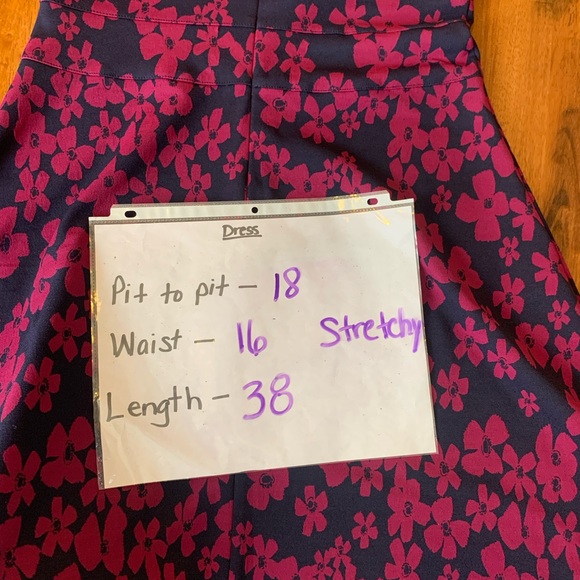 Dress
Pit to pit - 18
Waist - 16 Stretchy
Length - 38